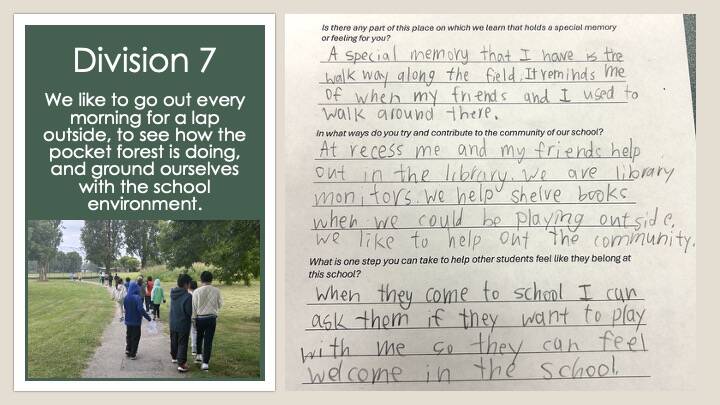 Division 7
We like to go out every
morning for a lap
outside, to see how the
pocket forest is doing,
and ground ourselves
with the school
environment.
Is there any part of this place on which we learn that holds a special memory
or feeling for you?
A special memory that I have is the
walk way along the field. It reminds me
of when my friends and I used to
walk around there.
In what ways do you try and contribute to the community of our school?
At recess me and my friends help
out in the library. We are library
monitors. we help shelve books
when we could be playing outside.
we like to help out the community.
What is one step you can take to help other students feel like they belong at
this school?
When they come to school I can
ask them if they want to play
with me so they can feel
welcome in the school.